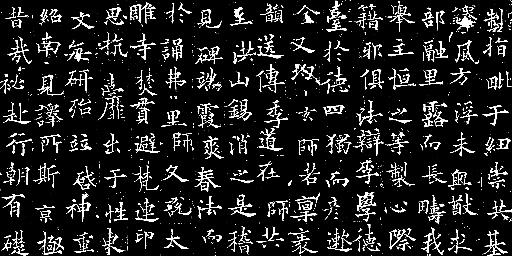 製柏毗于紐崇共基
風方浮未興猷求
部融里露而長疇我
舉王恒之等製心際
籍耶俱法辯季學德
臺於德四獨而彦
全又玄師若稟裹
韻送傳季道在師共
至洪山錫消之是稽
見碑端霞爽春法而
於誦弗里師久說太
雕寺焚貫避梵速印
思抗臺靡出于性東
文每研殆竝感神重
紹南見譯所斯京極
昔哉祕赴行朝有礎